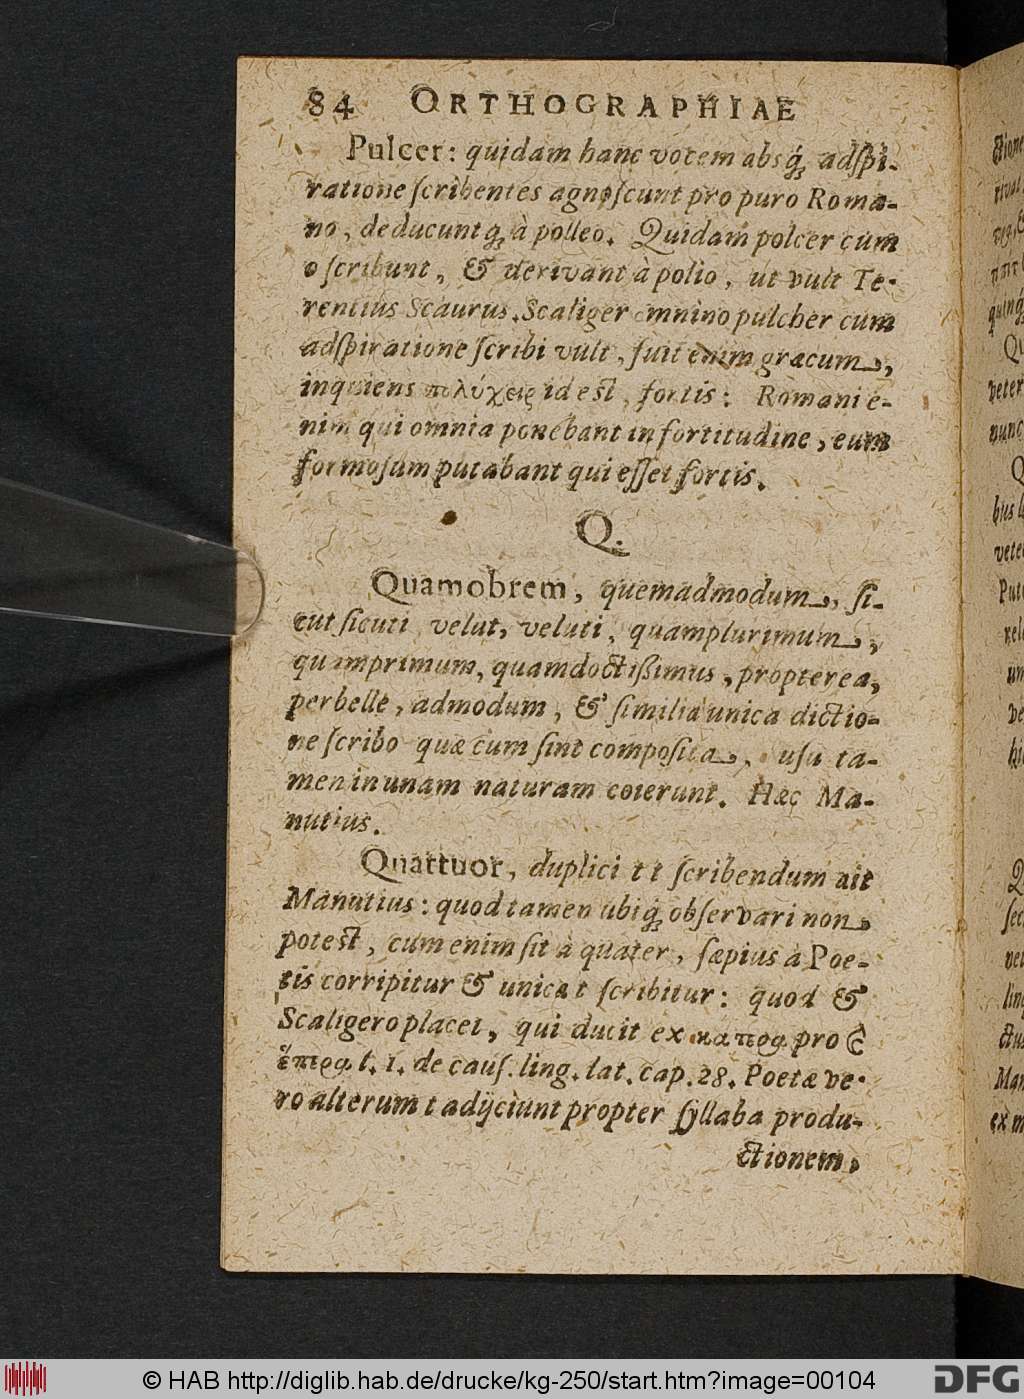 84 ORTHOGRAPHIAE
Pulcer: quidam hanc vocem absq́ꝫ adſpi-
ratione ſcribentes agnoſcunt pro puro Roma-
no, deducuntqꝫ à polleo. Quidam polcer cum
o ſcribunt, & derivant à polio, ut vult Te-
rentius Scaurus. Scaliger omnino pulcher cum
adſpiratione ſcribi vult, fuit enim græcum,
inquiens πολύχειρ id eſt, fortis: Romani e-
nim qui omnia ponebant in fortitudine, eum
formoſum putabant qui eſſet fortis.
Q.
Quamobrem, quemadmodum, ſi-
cut ſicuti velut, veluti, quamplurimum,
quamprimum, quamdoctißimus, propterea,
perbelle, admodum, & ſimilia unica dictio-
ne ſcribo quæ cum ſint compoſita, uſu ta-
men in unam naturam coierunt. Hæc Ma-
nutius.
Quattuor, duplici tt ſcribendum ait
Manutius: quod tamen ubiq́ꝫ obſervari non
poteſt, cum enim ſit à quater, ſæpius à Poe-
tis corripitur & unica t ſcribitur: quod &
Scaligero placet, qui ducit ex κα προα pro
ἕπρα l. 1. de cauſ. ling. lat. cap. 28. Poetæ ve-
ro alterum t adijciunt propter ſyllaba produ-
ctionem,
© HAB http://diglib.hab.de/drucke/kg-250/start.htm?image=00104
DFG